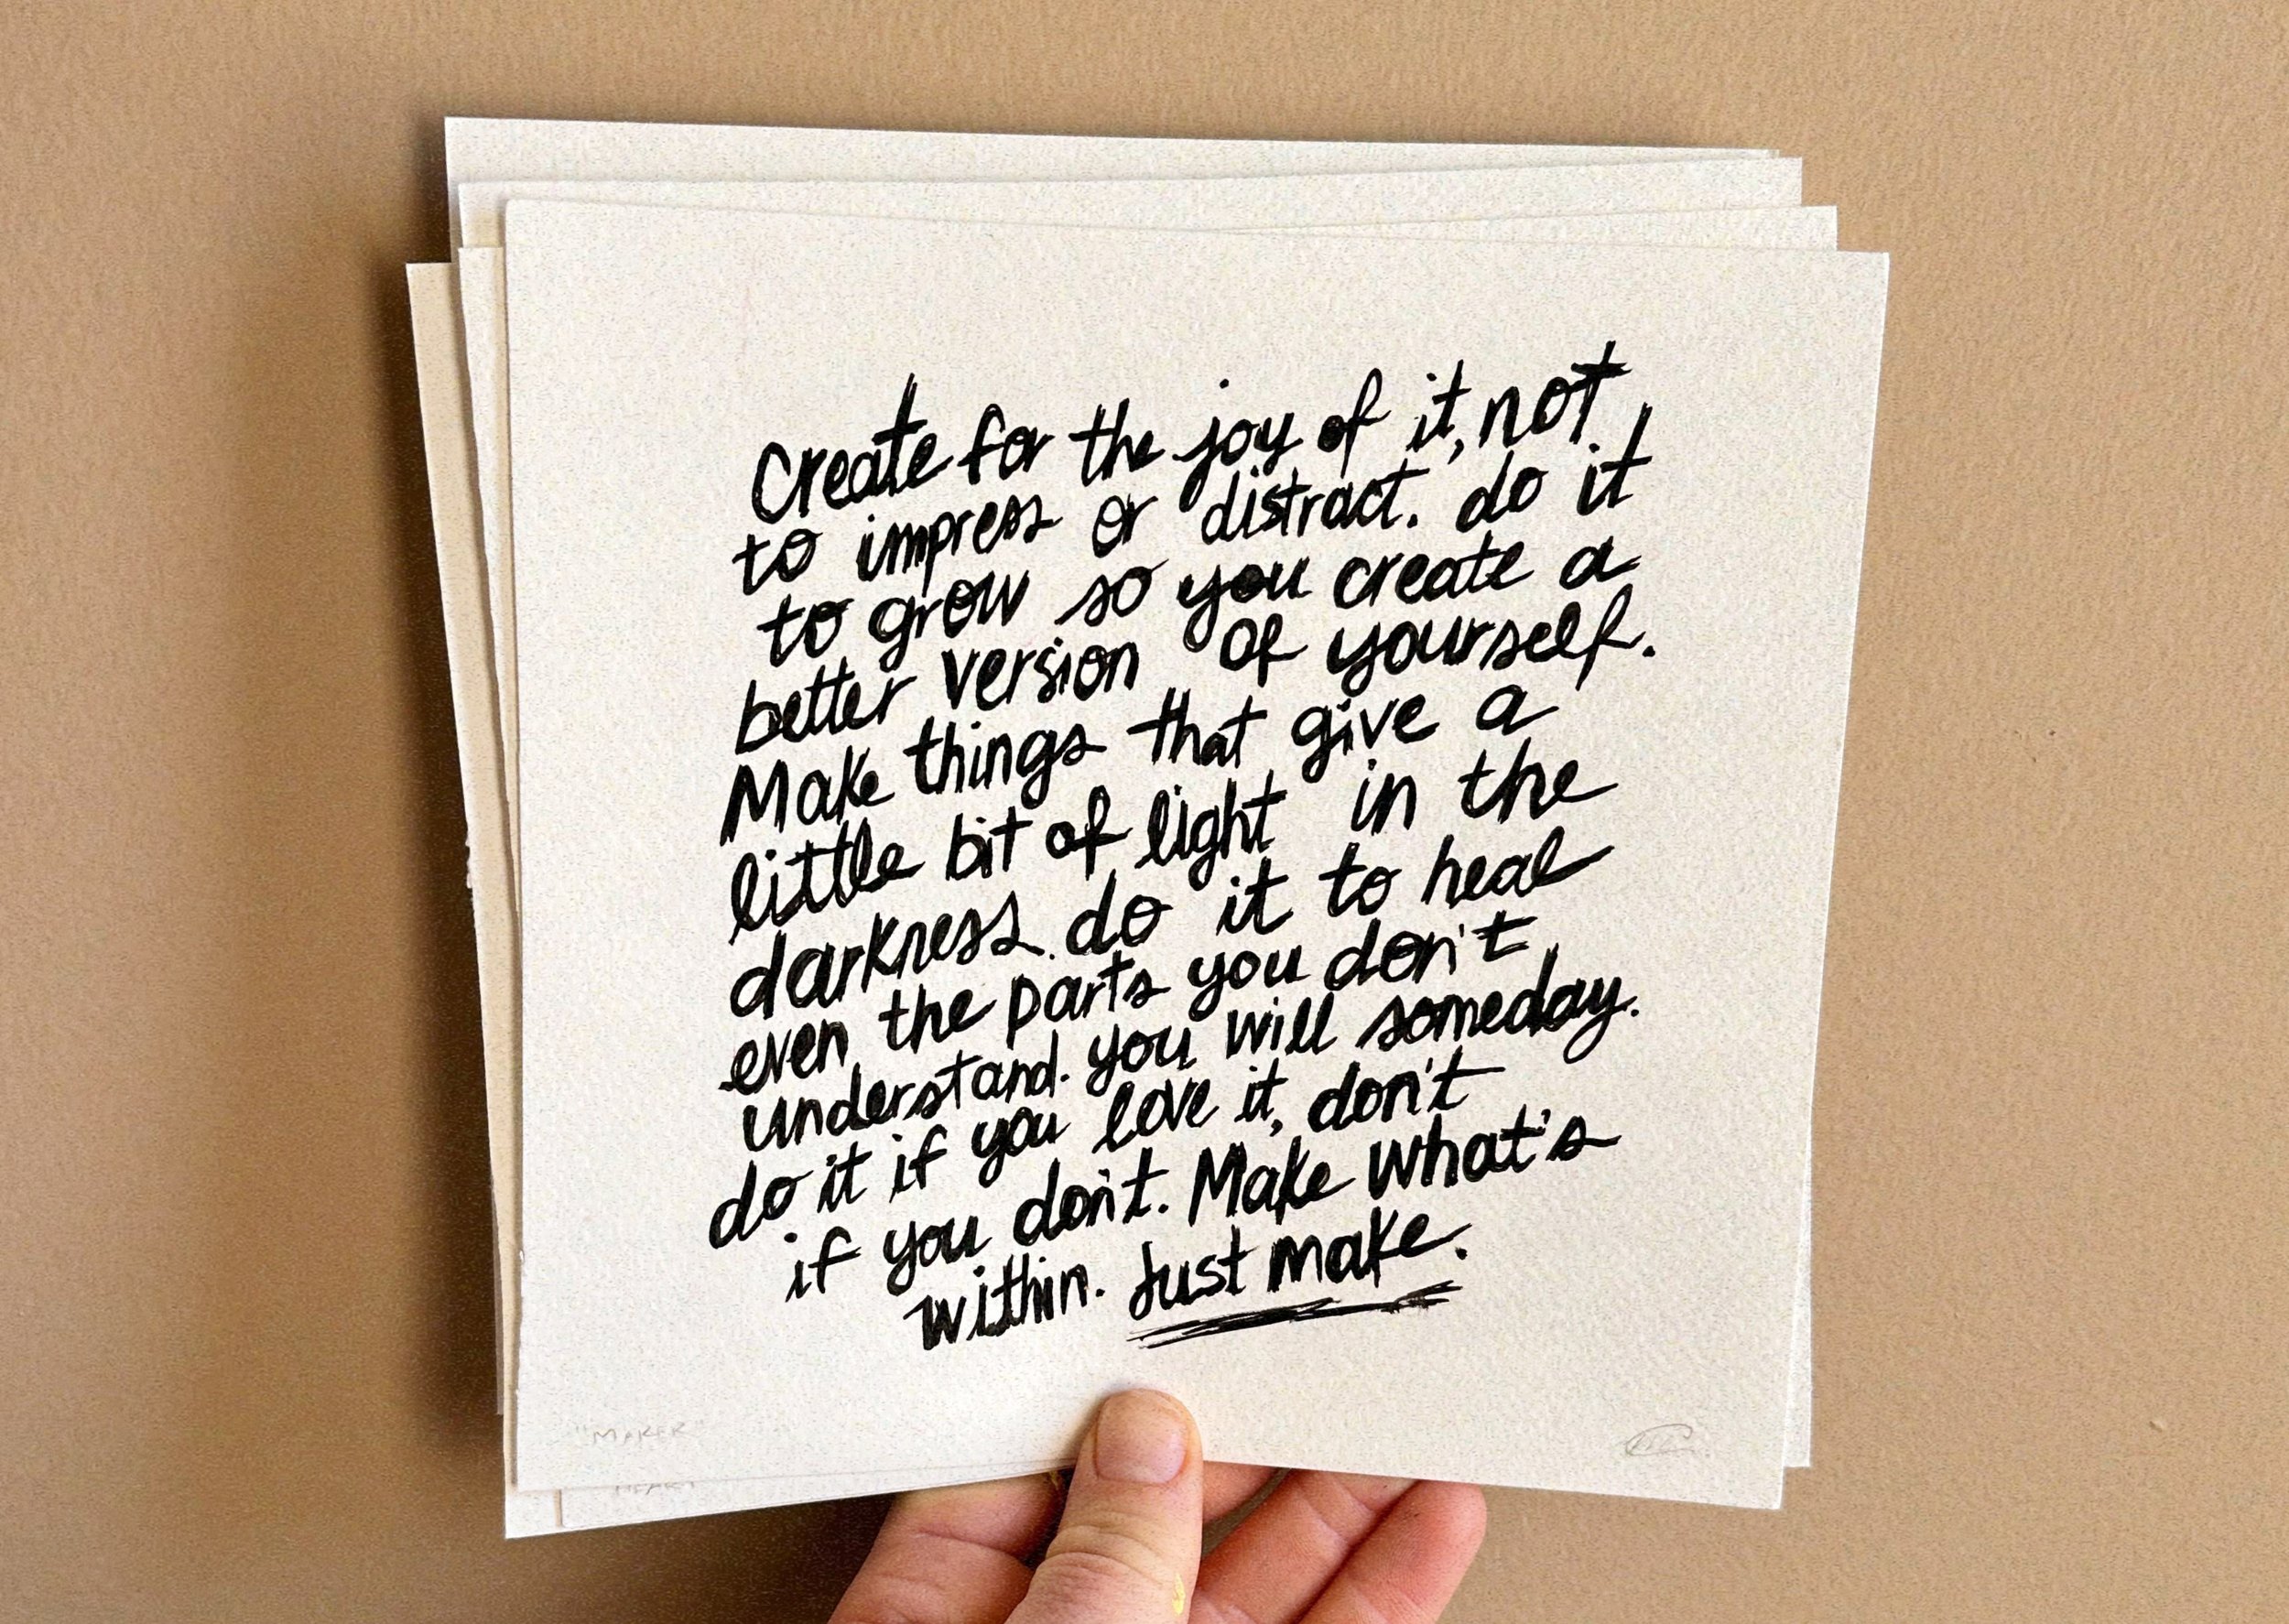 Create for the joy of it, not
to impress or distract. do it
to grow so you create a
better version of yourself.
Make things that give a
little bit of light in the
darkness. do it to heal
even the parts you don't
understand. you will someday.
do it if you love it, don't
if you don't. Make what's
within. Just make.
"MAKER"
HEART